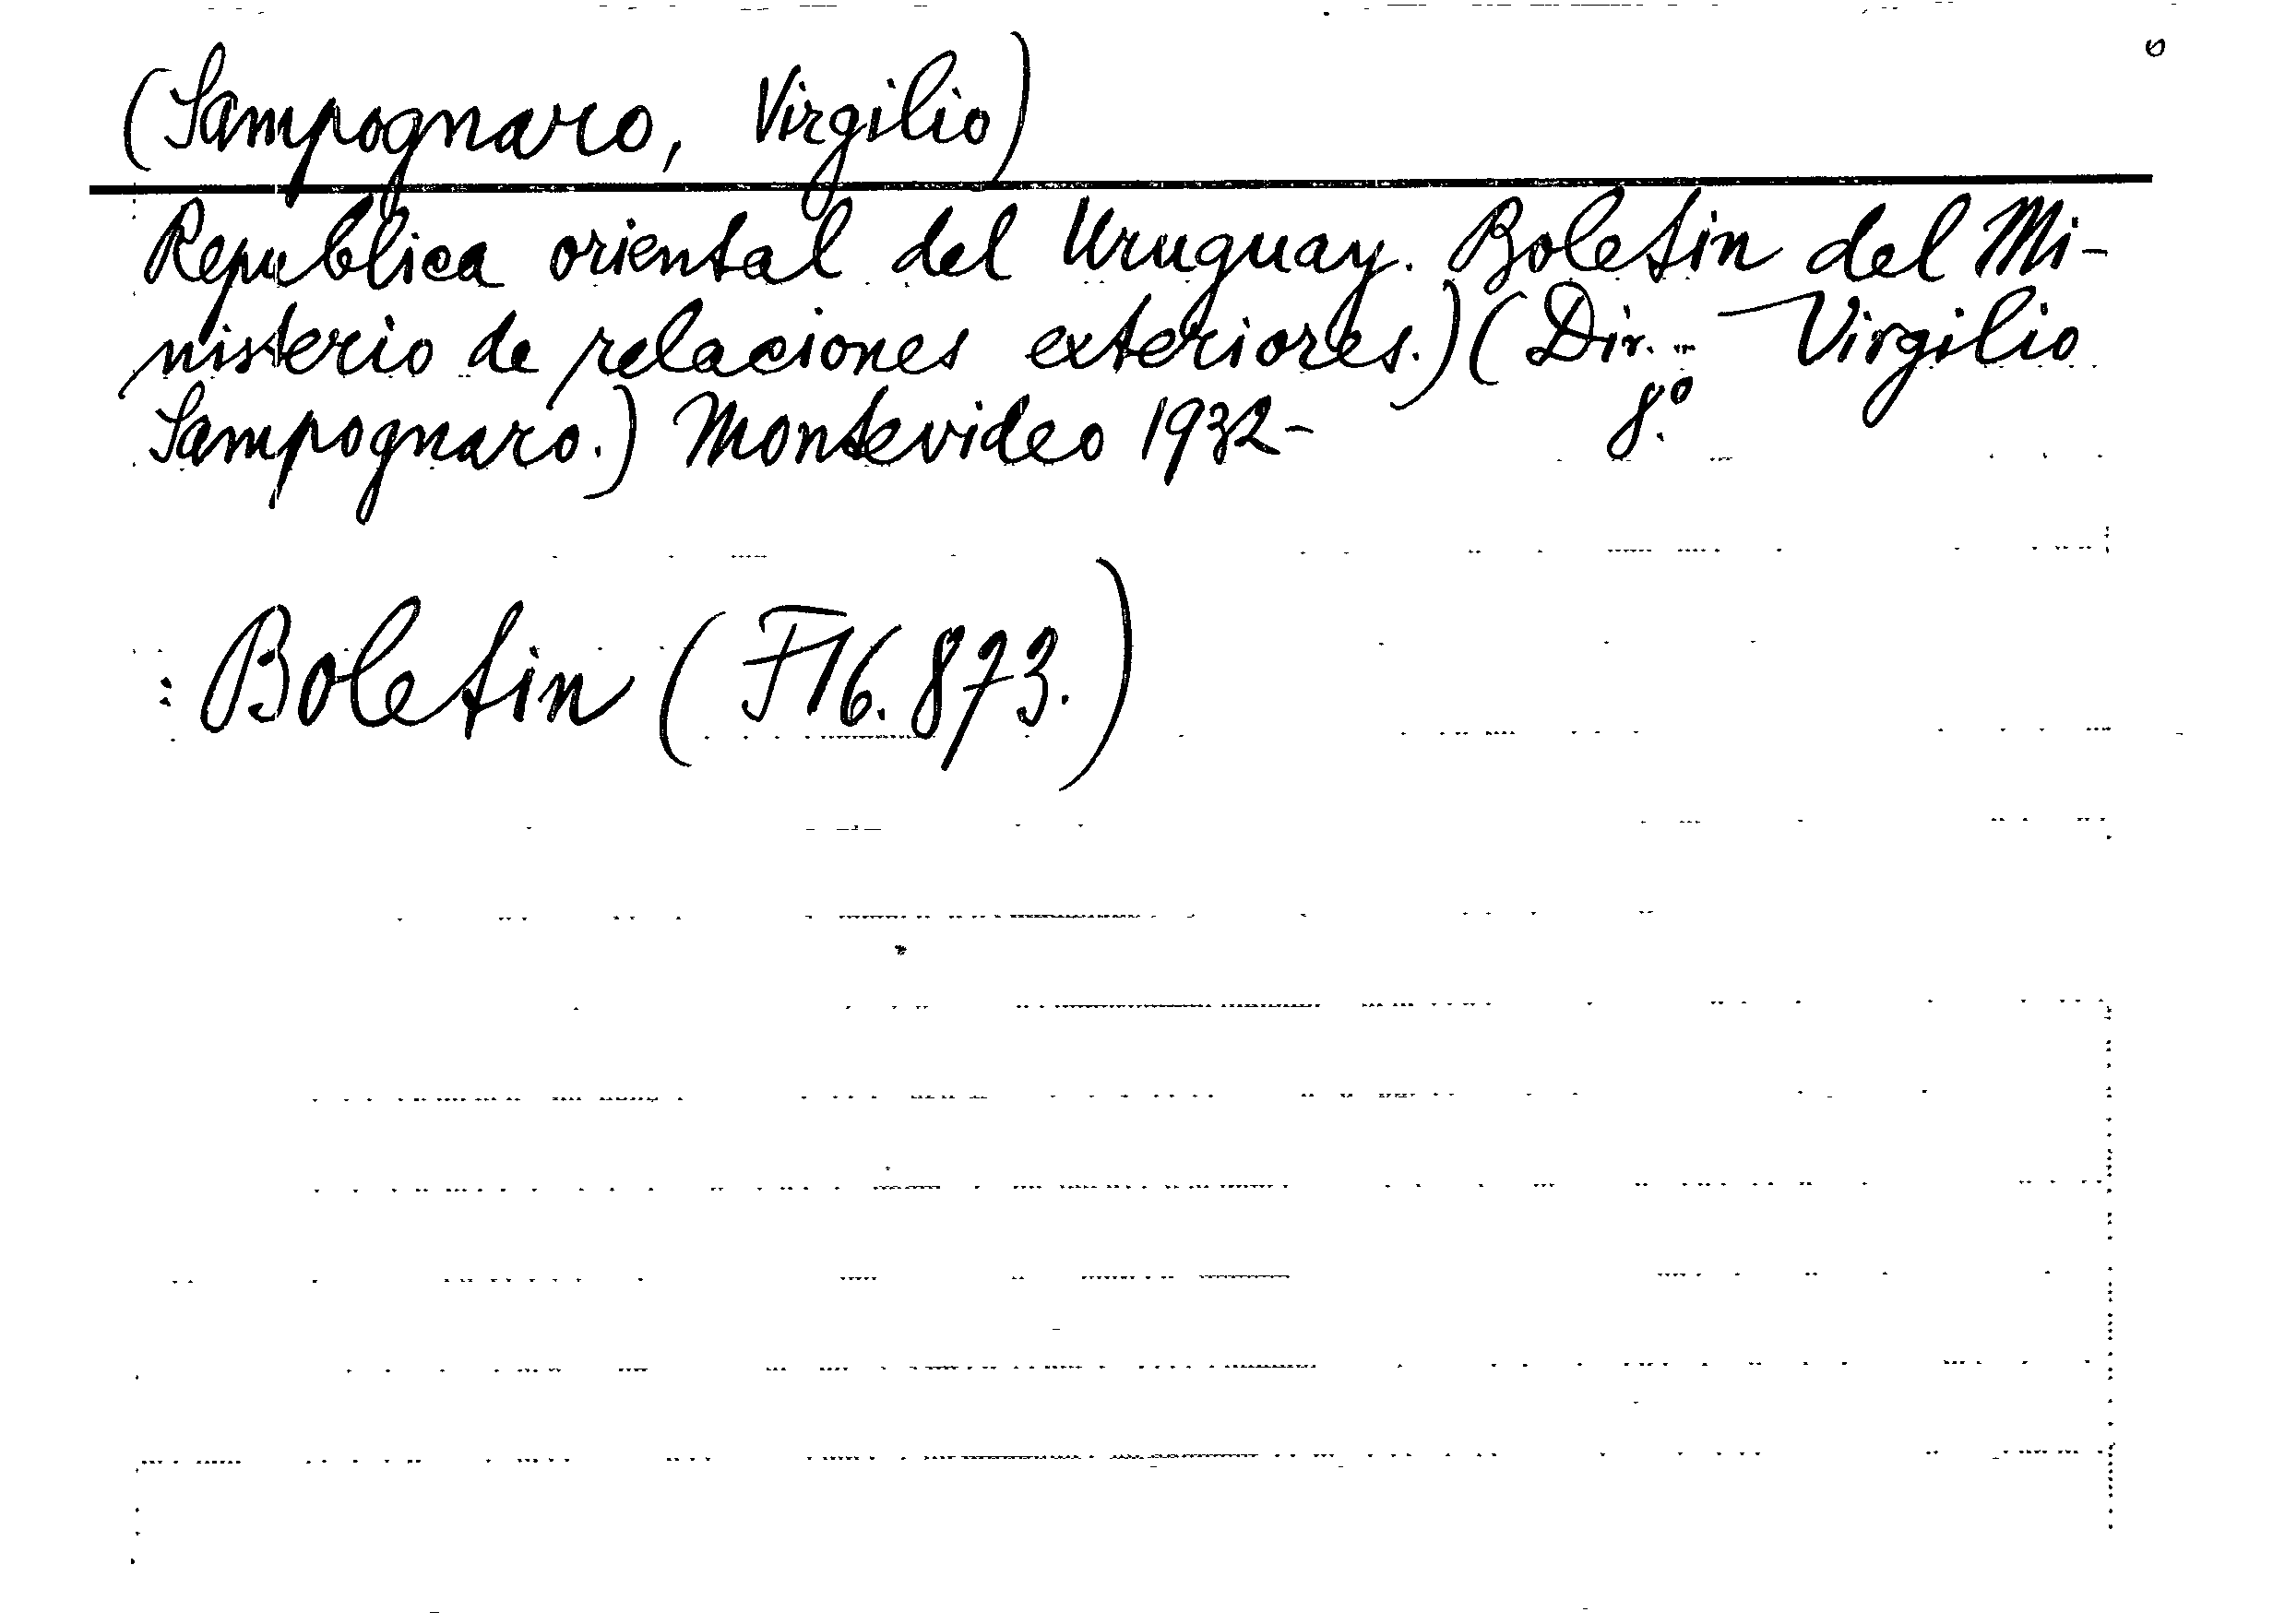 (Sampognaro, Virgilio)
Republica oriental del Uruguay. Boletin del Mi-
nisterio de relaciones exteriores.) (Dir. ... Virgilio
Sampognaro.) Montevideo 1932- 8.º
: Boletin (F16.873.)